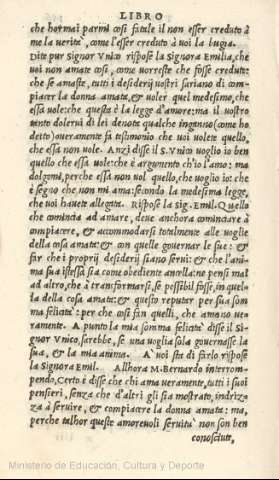 LIBRO
che hormai parmi cosi fatale il non esser creduto à
me la uerità, come l'esser creduto à uoi la bugia.
Dite pur Signor Vnico rispose la Signora Emilia, che
uoi non amate cosi, come uorreste che fosse creduto:
che se amaste, tutti i desiderij uostri sariano di com-
piacer la donna amata, & uoler quel medesimo, che
essa uole: che questa è la legge d'amore: ma il uostro
tanto dolerui di lei denota qualche inganno (come ho
detto) oueramente fa testimonio che uoi uolete quello,
che essa non uole. Anzi disse il S. Vnico uoglio io ben
quello che essa uole: che è argomento ch'io l'amo: ma
dolgomi, perche essa non uol quello, che uoglio io: che
è segno che non mi ama: secondo la medesima legge,
che uoi hauete allegata. Rispose la sig. Emil. Quello
che comincia ad amare, deue anchora cominciare à
compiacere, & accommodarsi totalmente alle uoglie
della cosa amata: & con quelle gouernar le sue: &
far che i proprij desiderij siano serui: & che l'ani-
ma sua istessa sia come obediente ancella: ne pensi mai
ad altro, che à transformarsi, se possibil fosse, in quel-
la della cosa amata: & questo reputar per sua som
ma felicità: per che cosi fan quelli, che amano ue
ramente. A punto la mia somma felicità disse il Si
gnor Vnico, sarebbe, se una uoglia sola gouernasse la
sua, & la mia anima. A' uoi sta di farlo, rispose
la Signora Emil. Allhora M. Bernardo interrom-
pendo, Certo è disse che chi ama ueramente, tutti i suoi
pensieri, senza che d'altri gli sia mostrato, indriza
za à seruire, & compiacere la donna amata: ma,
perche talhor queste amoreuoli seruitù non son ben
conosciute,
Ministerio de Educación, Cultura y Deporte